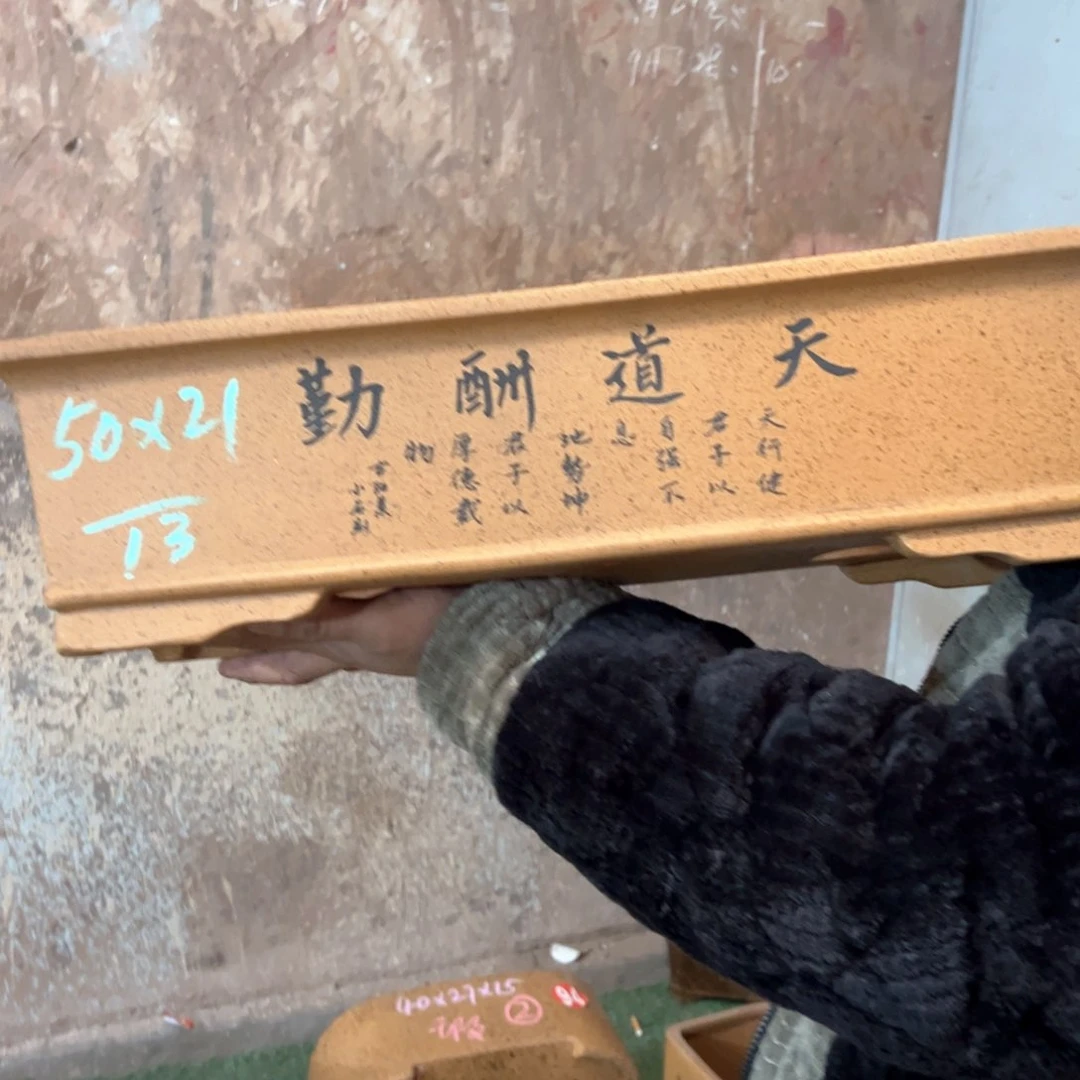 天道酬勤
天行健
君子以
自强不
息
地势坤
君子以
厚德载
物
50x21
13
40x27x15
②